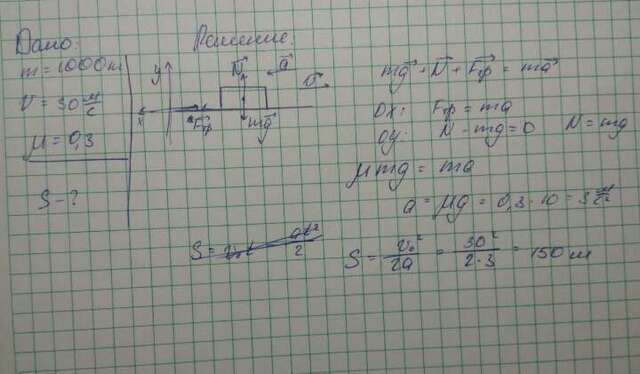 Дано:
m = 1000 кг
V = 30 м/с
μ = 0,3
S - ?
Решение:
y
N⃗
a⃗
v⃗
x
F⃗тр
mg⃗
mg⃗ + N⃗ + F⃗тр = ma⃗
OX: Fтр = ma
OY: N - mg = 0 N = mg
μmg = ma
a = μg = 0,3 · 10 = 3 м/с²
S = v₀²/2a = 30²/2·3 = 150 м